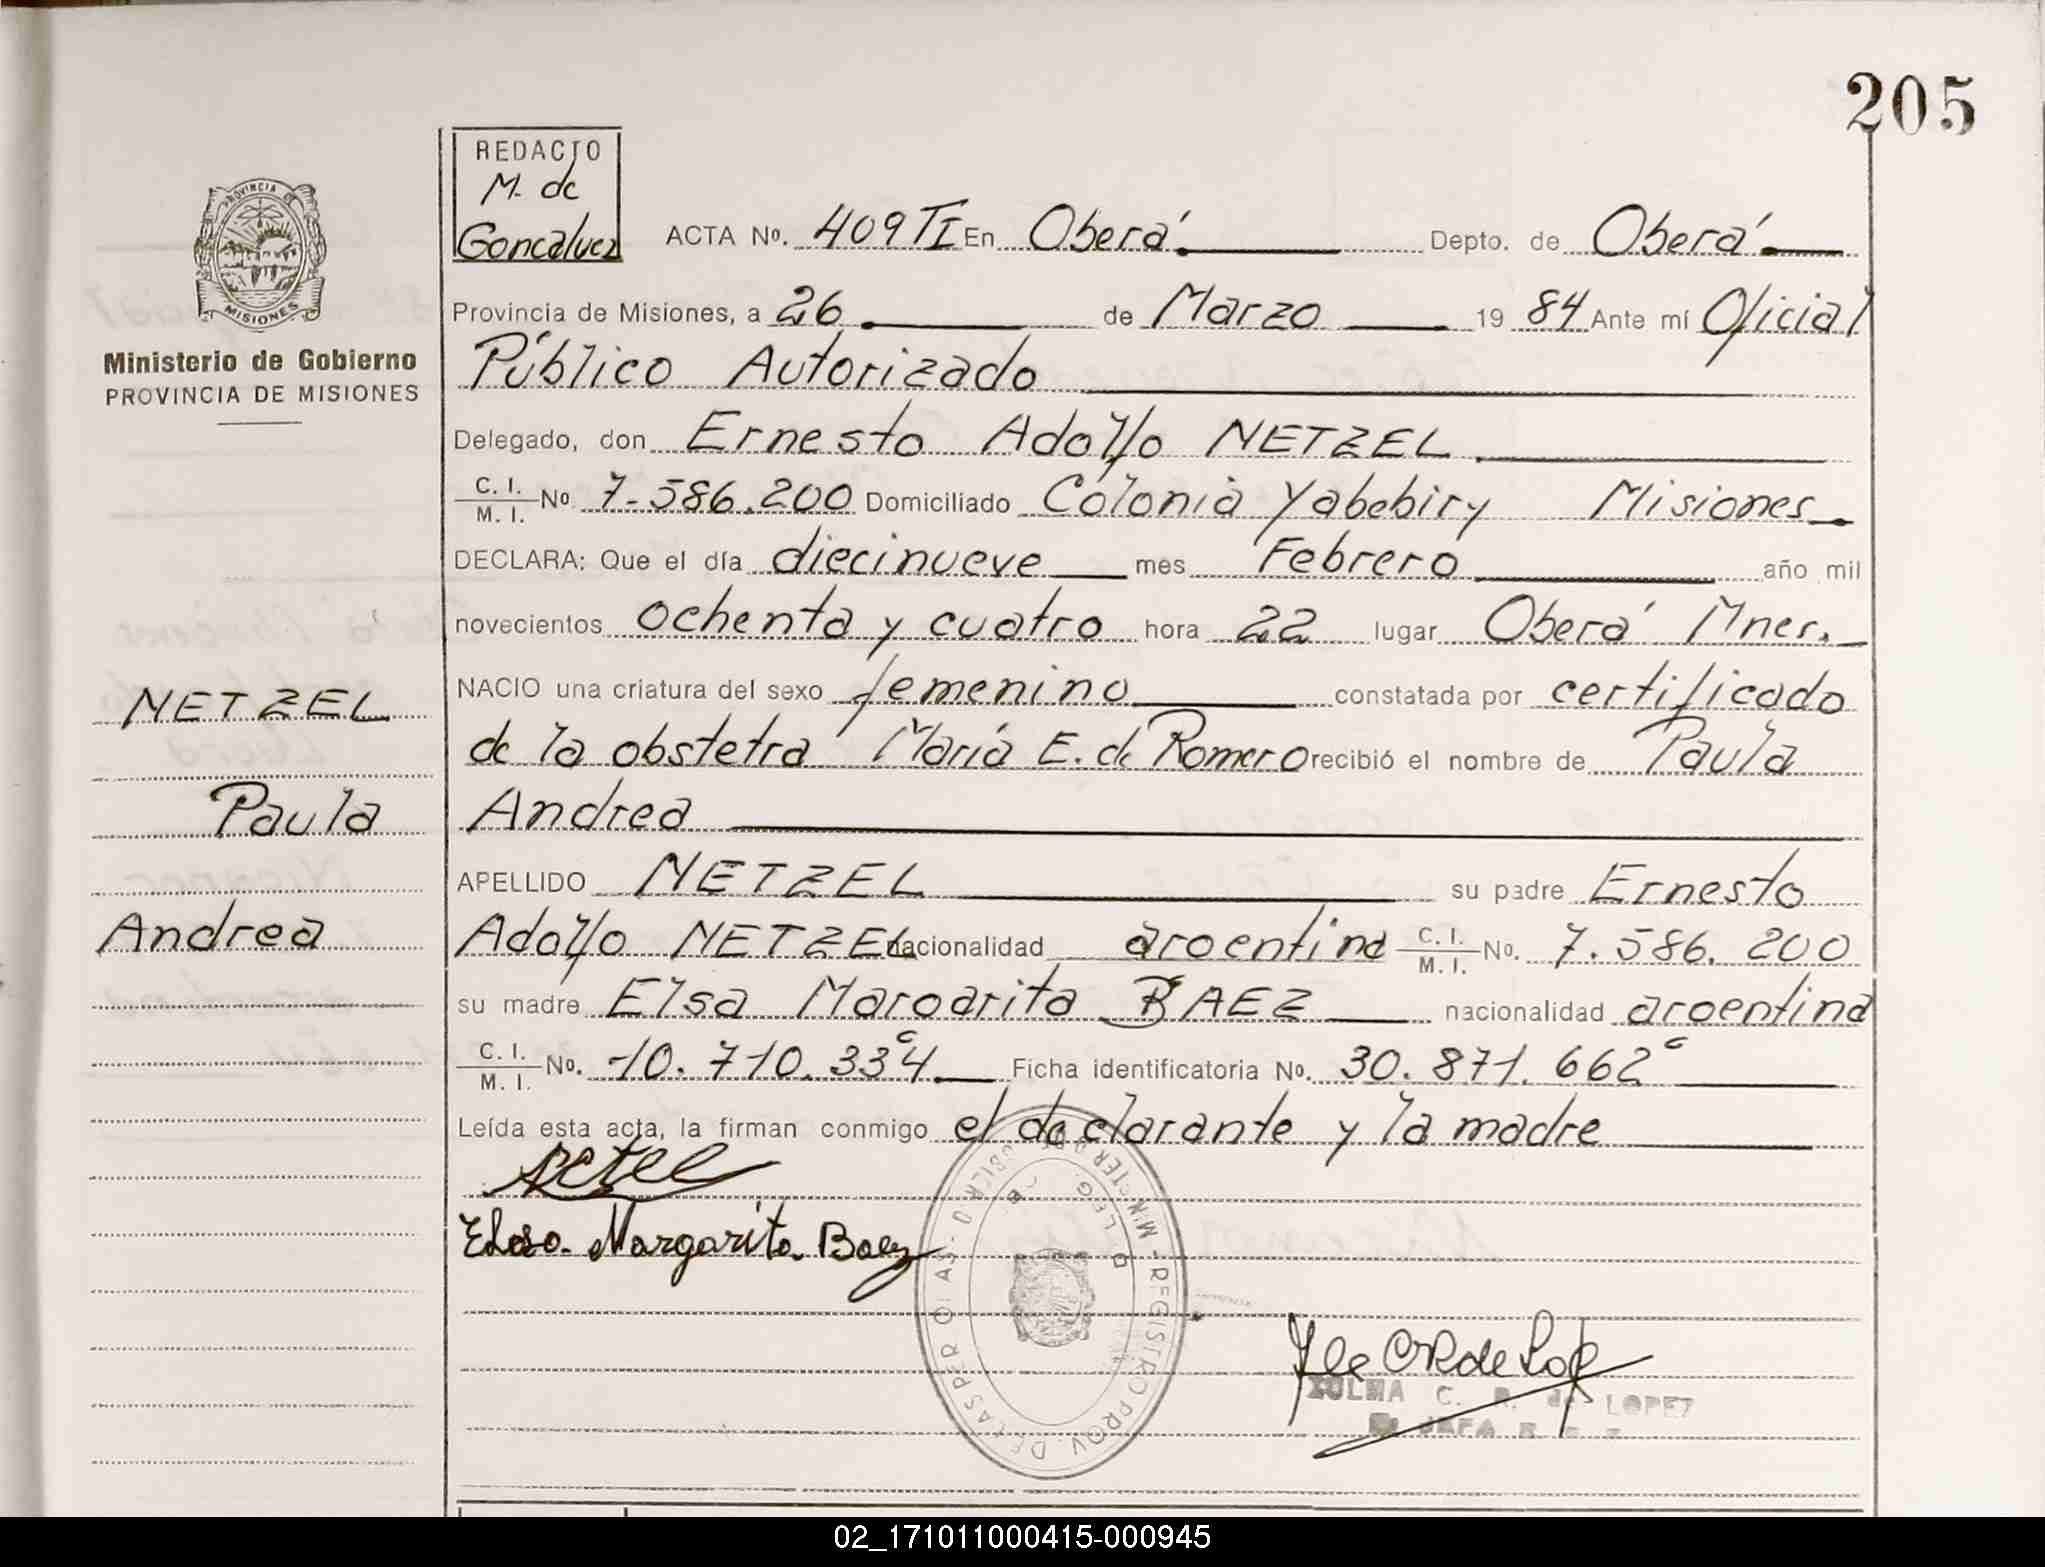 205
REDACTO
M. de
Goncalvez
PROVINCIA DE
MISIONES
Ministerio de Gobierno
PROVINCIA DE MISIONES
ACTA No. 409 TI En Oberá Depto. de Oberá
Provincia de Misiones, a 26 de Marzo 19 84 Ante mí Oficial
Público Autorizado
Delegado, don Ernesto Adolfo NETZEL
C. I. / M. I. No 7.586.200 Domiciliado Colonia Yabebiry Misiones
DECLARA: Que el día diecinueve mes Febrero año mil
novecientos ochenta y cuatro hora 22 lugar Oberá Mnes.
NACIO una criatura del sexo femenino constatada por certificado
de la obstetra María E. de Romero recibió el nombre de Paula
Andrea
APELLIDO NETZEL su padre Ernesto
Adolfo NETZEL nacionalidad argentina C. I. / M. I. No. 7.586.200
su madre Elsa Margarita BAEZ nacionalidad argentina
C. I. / M. I. No. 10.710.334 Ficha identificatoria No. 30.871.662
Leída esta acta, la firman conmigo el declarante y la madre
NETZEL
Paula
Andrea
Elsa Margarita Baez
REGISTRO PROV. DE LAS PERSONAS
ZULMA C. R. de LOPEZ
JEFA
02_171011000415-000945